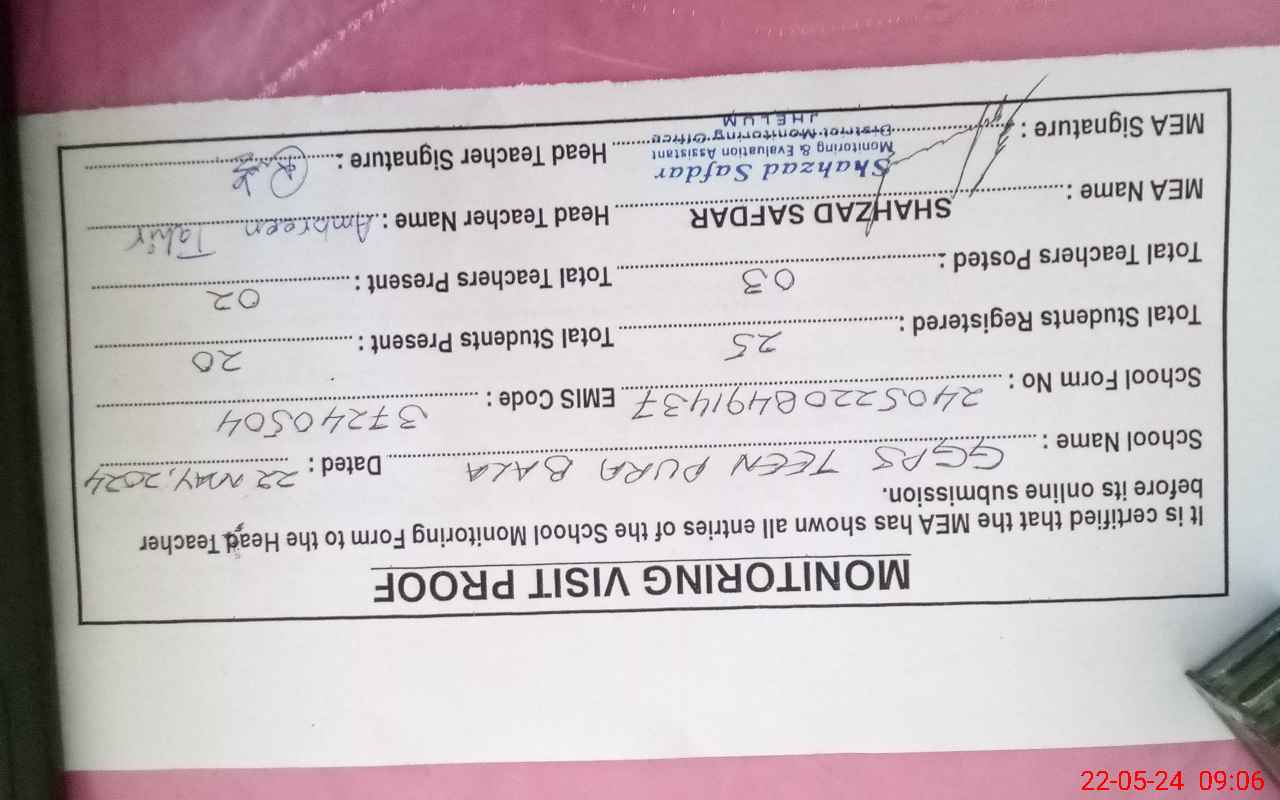 MONITORING VISIT PROOF
It is certified that the MEA has shown all entries of the School Monitoring Form to the Head Teacher
before its online submission.
School Name : GGPS TEEN PURA BALA Dated : 22 MAY, 2024
School Form No : 24052208491437 EMIS Code : 37240504
Total Students Registered : 25 Total Students Present : 20
Total Teachers Posted : 03 Total Teachers Present : 02
MEA Name : SHAHZAD SAFDAR Head Teacher Name : Ambreen Tahir
MEA Signature : Head Teacher Signature :
Shahzad Safdar
Monitoring & Evaluation Assistant
District Monitoring Office
JHELUM
22-05-24 09:06